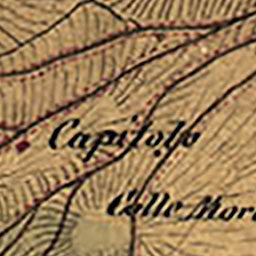 Capitolo
Colle Mor